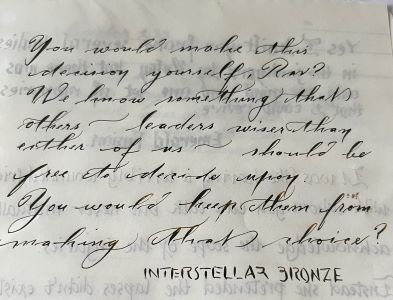 You would make this
decision yourself, Rav?
We know something that
others – leaders wiser than
either of us – should be
free to decide upon
You would keep them from
making that choice?
INTERSTELLAR BRONZE